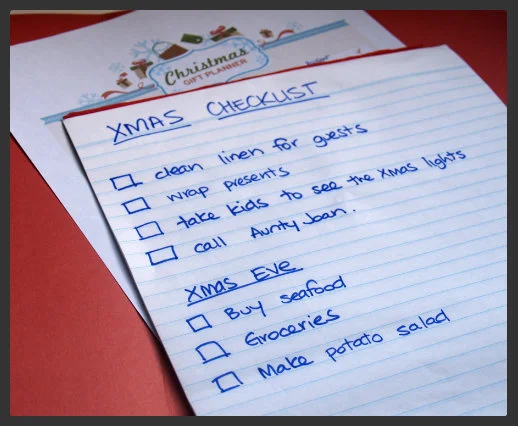 Christmas
GIFT PLANNER
XMAS CHECKLIST
clean linen for guests
wrap presents
take kids to see the Xmas lights
call Aunty Joan.
Xmas Eve
Buy seafood
Groceries
Make potato salad